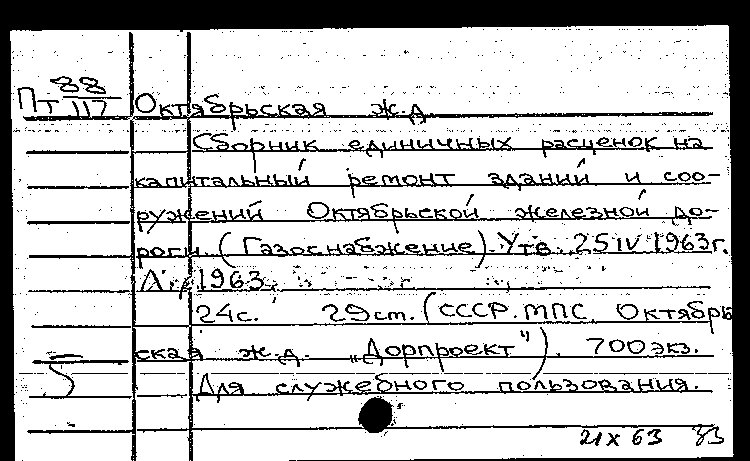 Пт 88/117 Октябрьская ж.д.
Сборник единичных расценок на
капитальный ремонт зданий и соо-
ружений Октябрьской железной до-
роги (Газоснабжение). Утв. 25 IV 1963г.
1963.
24с. 29см. (СССР. МПС. Октябрь
ская ж.д. „Дорпроект"). 700 экз.
Для служебного пользования.
21 X 63